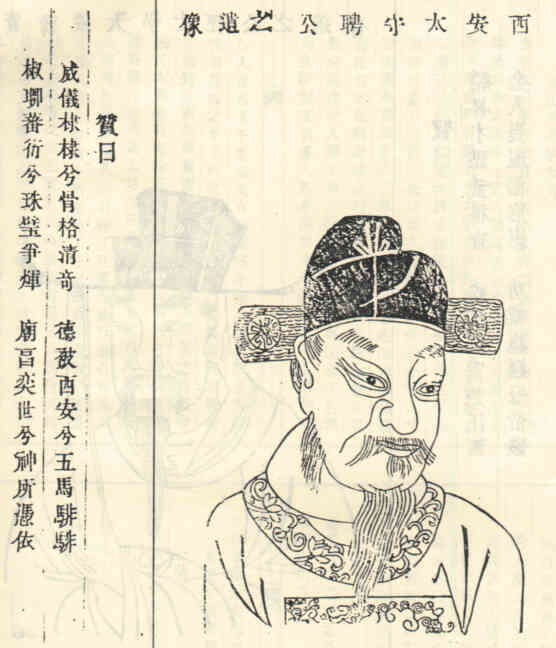 西安太守聘公之遺像
贊曰
威儀棣棣兮骨格清奇 德敷西安兮五馬騑騑
椒聊蕃衍兮珠璧爭輝 廟奕世兮神所憑依